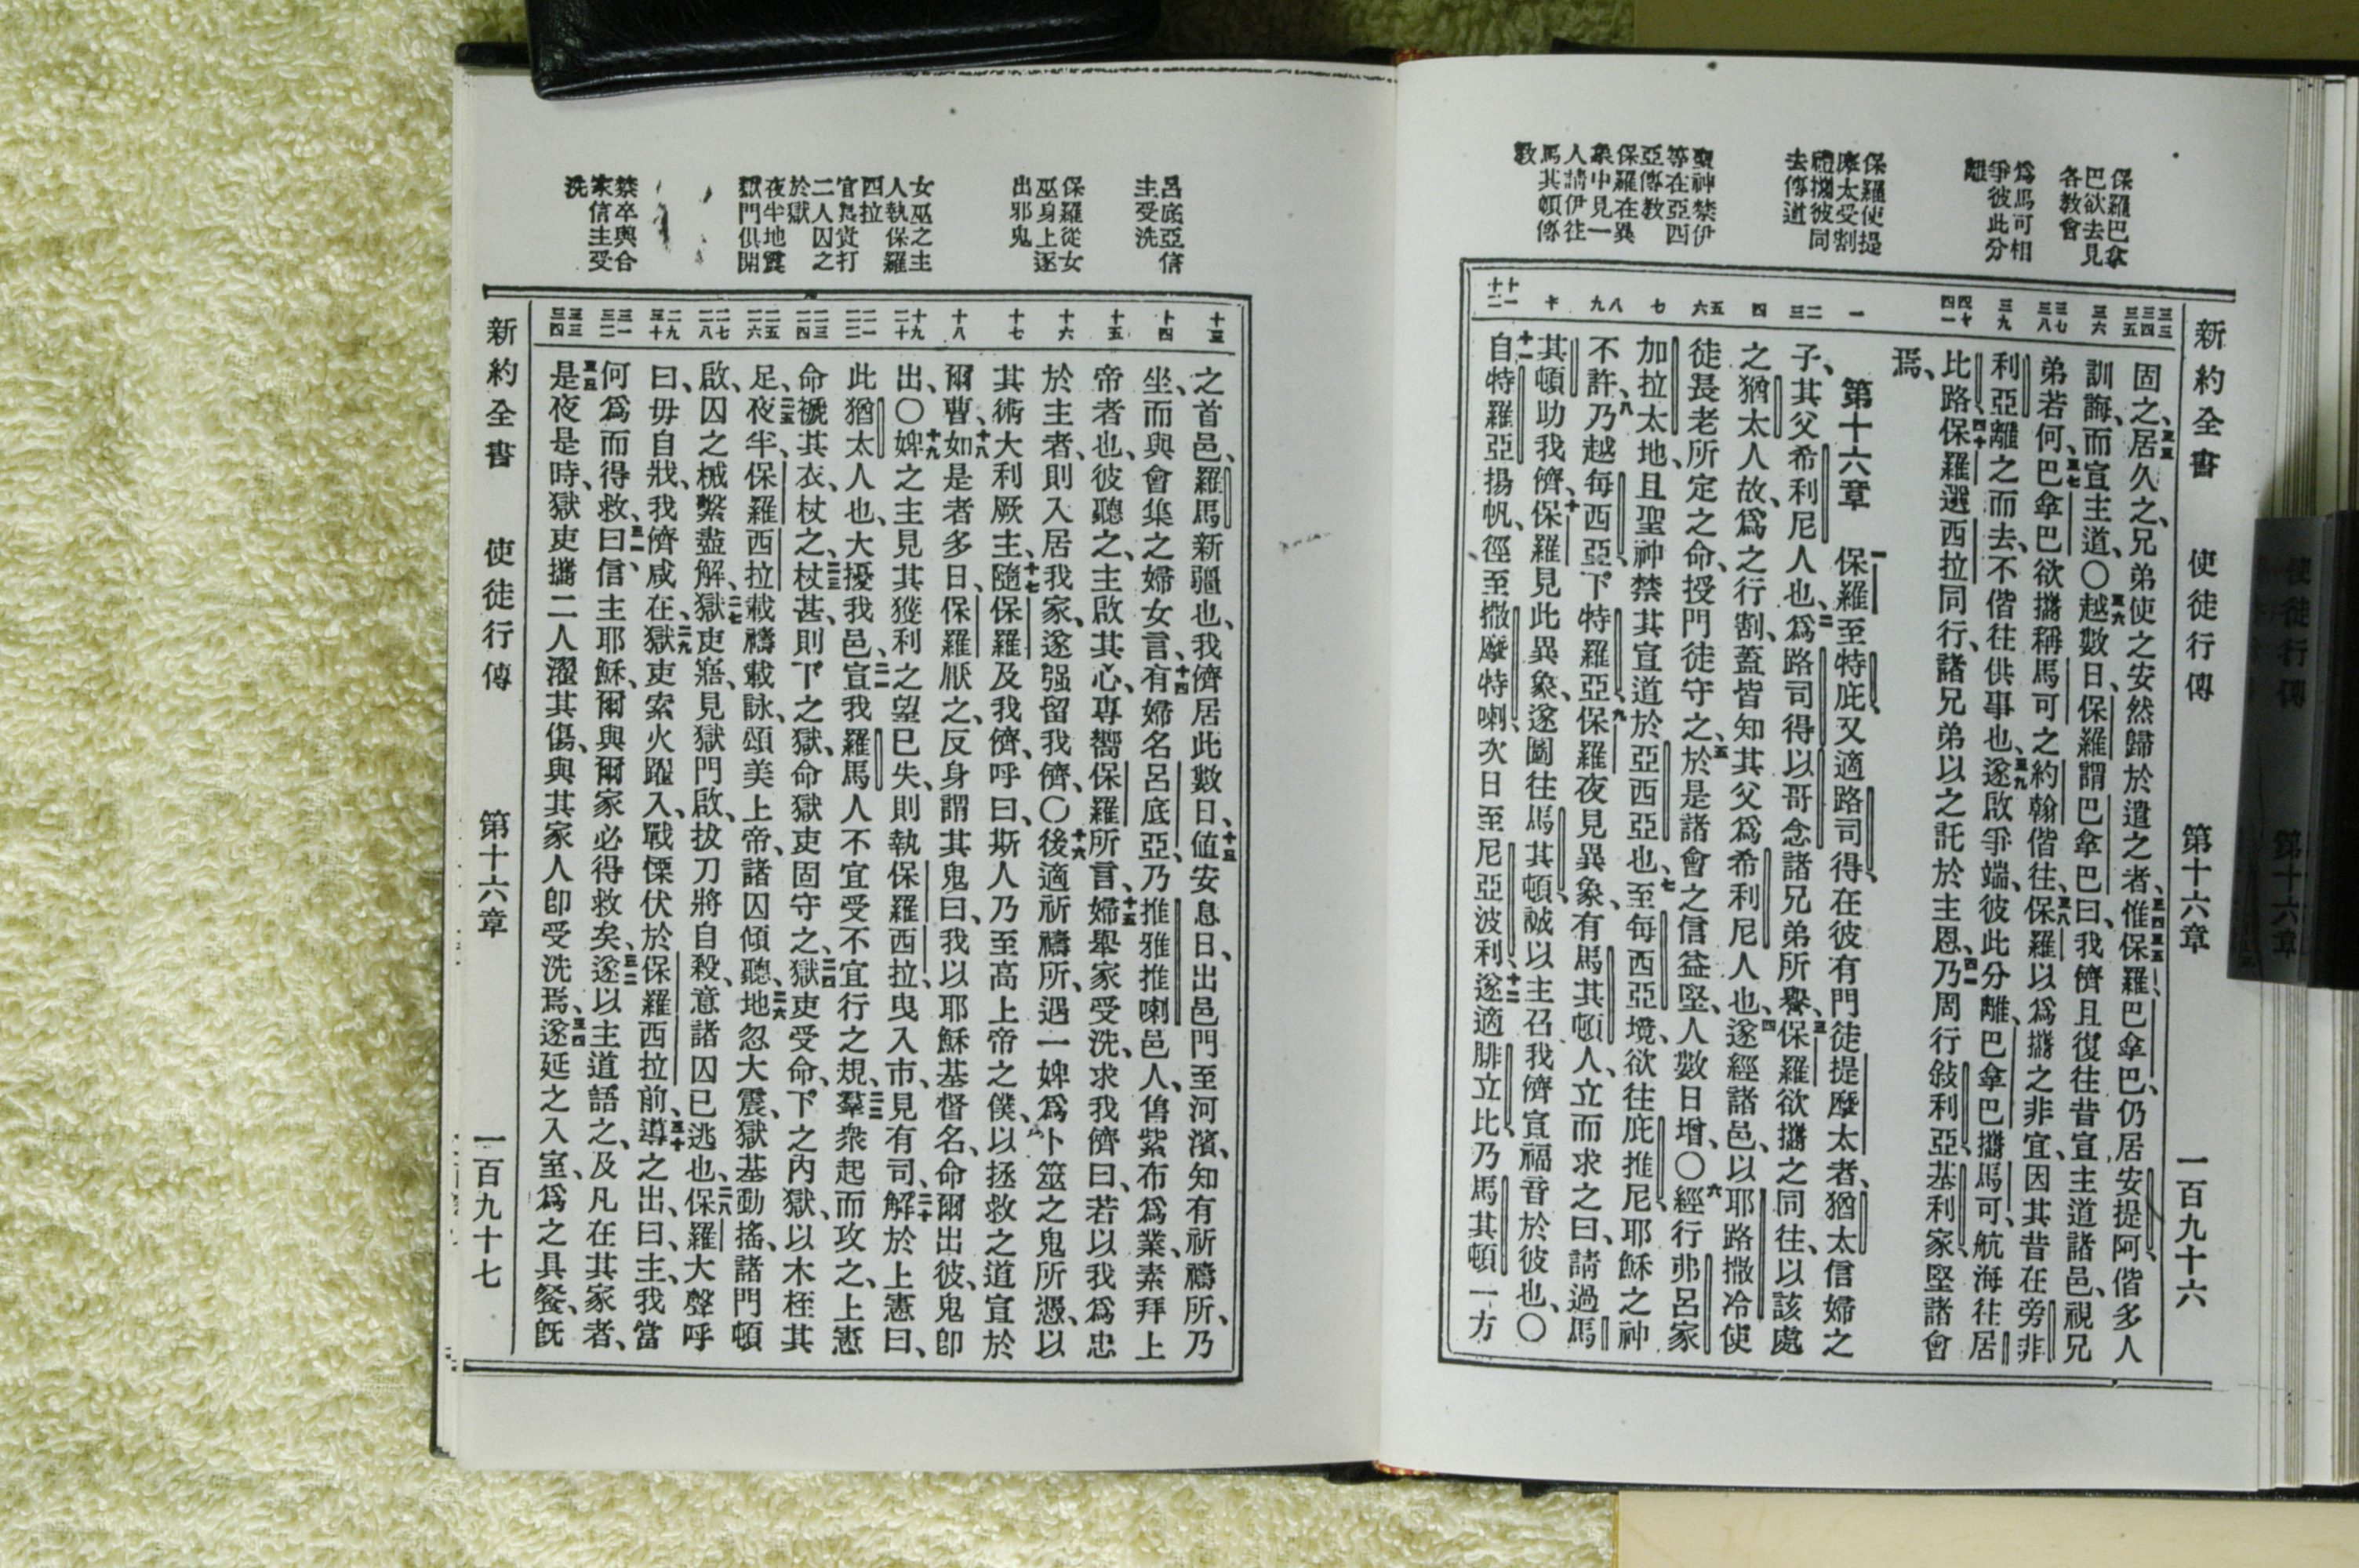 保羅巴拿
巴欲去見
各敎會
爲馬可相
爭彼此分
離
保羅使提
摩太受割
禮攜彼同
去傳道
聖神禁伊
等在亞西
亞傳敎
保羅在異
象中見一
人請伊往
馬其頓傳
敎
新約全書 使徒行傳 第十六章 一百九十六
三三 三四 三五 三六 三七 三八 三九 四十 四一 一 二 三 四 五 六 七 八 九 十 十一 十二
固之、三三居久之、兄弟使之安然歸於遣之者、三四三五惟保羅、巴拿巴、仍居安提阿、偕多人
訓誨、而宣主道、〇三六越數日、保羅謂巴拿巴曰、我儕且復往昔宣主道諸邑、視兄
弟若何、三七巴拿巴欲攜稱馬可之約翰偕往、三八保羅以爲攜之非宜、因其昔在旁非
利亞離之而去、不偕往供事也、三九遂啟爭端、彼此分離、巴拿巴攜馬可、航海往居
比路、四十保羅選西拉同行、諸兄弟以之託於主恩、四一乃周行敍利亞、基利家、堅諸會
焉、
第十六章 一保羅至特庇、又適路司得、在彼有門徒提摩太者、猶太信婦之
子、其父希利尼人也、二爲路司得以哥念諸兄弟所譽、三保羅欲攜之同往、以該處
之猶太人故、爲之行割、蓋皆知其父爲希利尼人也、四遂經諸邑、以耶路撒冷使
徒長老所定之命、授門徒守之、五於是諸會之信益堅、人數日增、〇六經行弗呂家
加拉太地、且聖神禁其宣道於亞西亞也、七至每西亞境、欲往庇推尼、耶穌之神
不許、八乃越每西亞、下特羅亞、九保羅夜見異象、有馬其頓人、立而求之曰、請過馬
其頓助我儕、十保羅見此異象、遂圖往馬其頓、誠以主召我儕宣福音於彼也、〇
十一自特羅亞揚帆、徑至撒摩特喇、次日至尼亞波利、十二遂適腓立比、乃馬其頓一方
呂底亞信
主受洗
保羅從女
巫身上逐
出邪鬼
女巫之主
人執保羅
四拉
官長責打
二人囚之
於獄
夜半地震
獄門俱開
禁卒與合
家信主受
洗
十三 十四 十五 十六 十七 十八 十九 二十 二一 二二 二三 二四 二五 二六 二七 二八 二九 三十 三一 三二 三三 三四
之首邑、羅馬新疆也、我儕居此數日、十三値安息日、出邑門至河濱、知有祈禱所、乃
坐、而與會集之婦女言、十四有婦名呂底亞、乃推雅推喇邑人、售紫布爲業、素拜上
帝者也、彼聽之、主啟其心、專嚮保羅所言、十五婦舉家受洗、求我儕曰、若以我爲忠
於主者、則入居我家、遂强留我儕、〇十六後適祈禱所、遇一婢爲卜筮之鬼所憑、以
其術大利厥主、十七隨保羅及我儕、呼曰、斯人乃至高上帝之僕、以拯救之道宣於
爾曹、十八如是者多日、保羅厭之、反身謂其鬼曰、我以耶穌基督名、命爾出彼、鬼卽
出、〇十九婢之主見其獲利之望已失、則執保羅西拉、曳入市、見有司、二十解於上憲曰、
此猶太人也、大擾我邑、二一宣我羅馬人不宜受不宜行之規、二二羣衆起而攻之、上憲
命褫其衣、杖之、二三杖甚、則下之獄、命獄吏固守之、二四獄吏受命、下之內獄、以木桎其
足、二五夜半、保羅西拉載禱載詠、頌美上帝、諸囚傾聽、二六地忽大震、獄基動搖、諸門頓
啟、囚之械繫盡解、二七獄吏寤、見獄門啟、拔刀將自殺、意諸囚已逃也、二八保羅大聲呼
曰、毋自戕、我儕咸在、二九獄吏索火躍入、戰慄伏於保羅西拉前、三十導之出、曰、主、我當
何爲而得救、三一曰、信主耶穌、爾與爾家必得救矣、三二遂以主道語之、及凡在其家者、
三三是夜是時、獄吏攜二人濯其傷、與其家人卽受洗焉、三四遂延之入室、爲之具餐、旣
新約全書 使徒行傳 第十六章 一百九十七